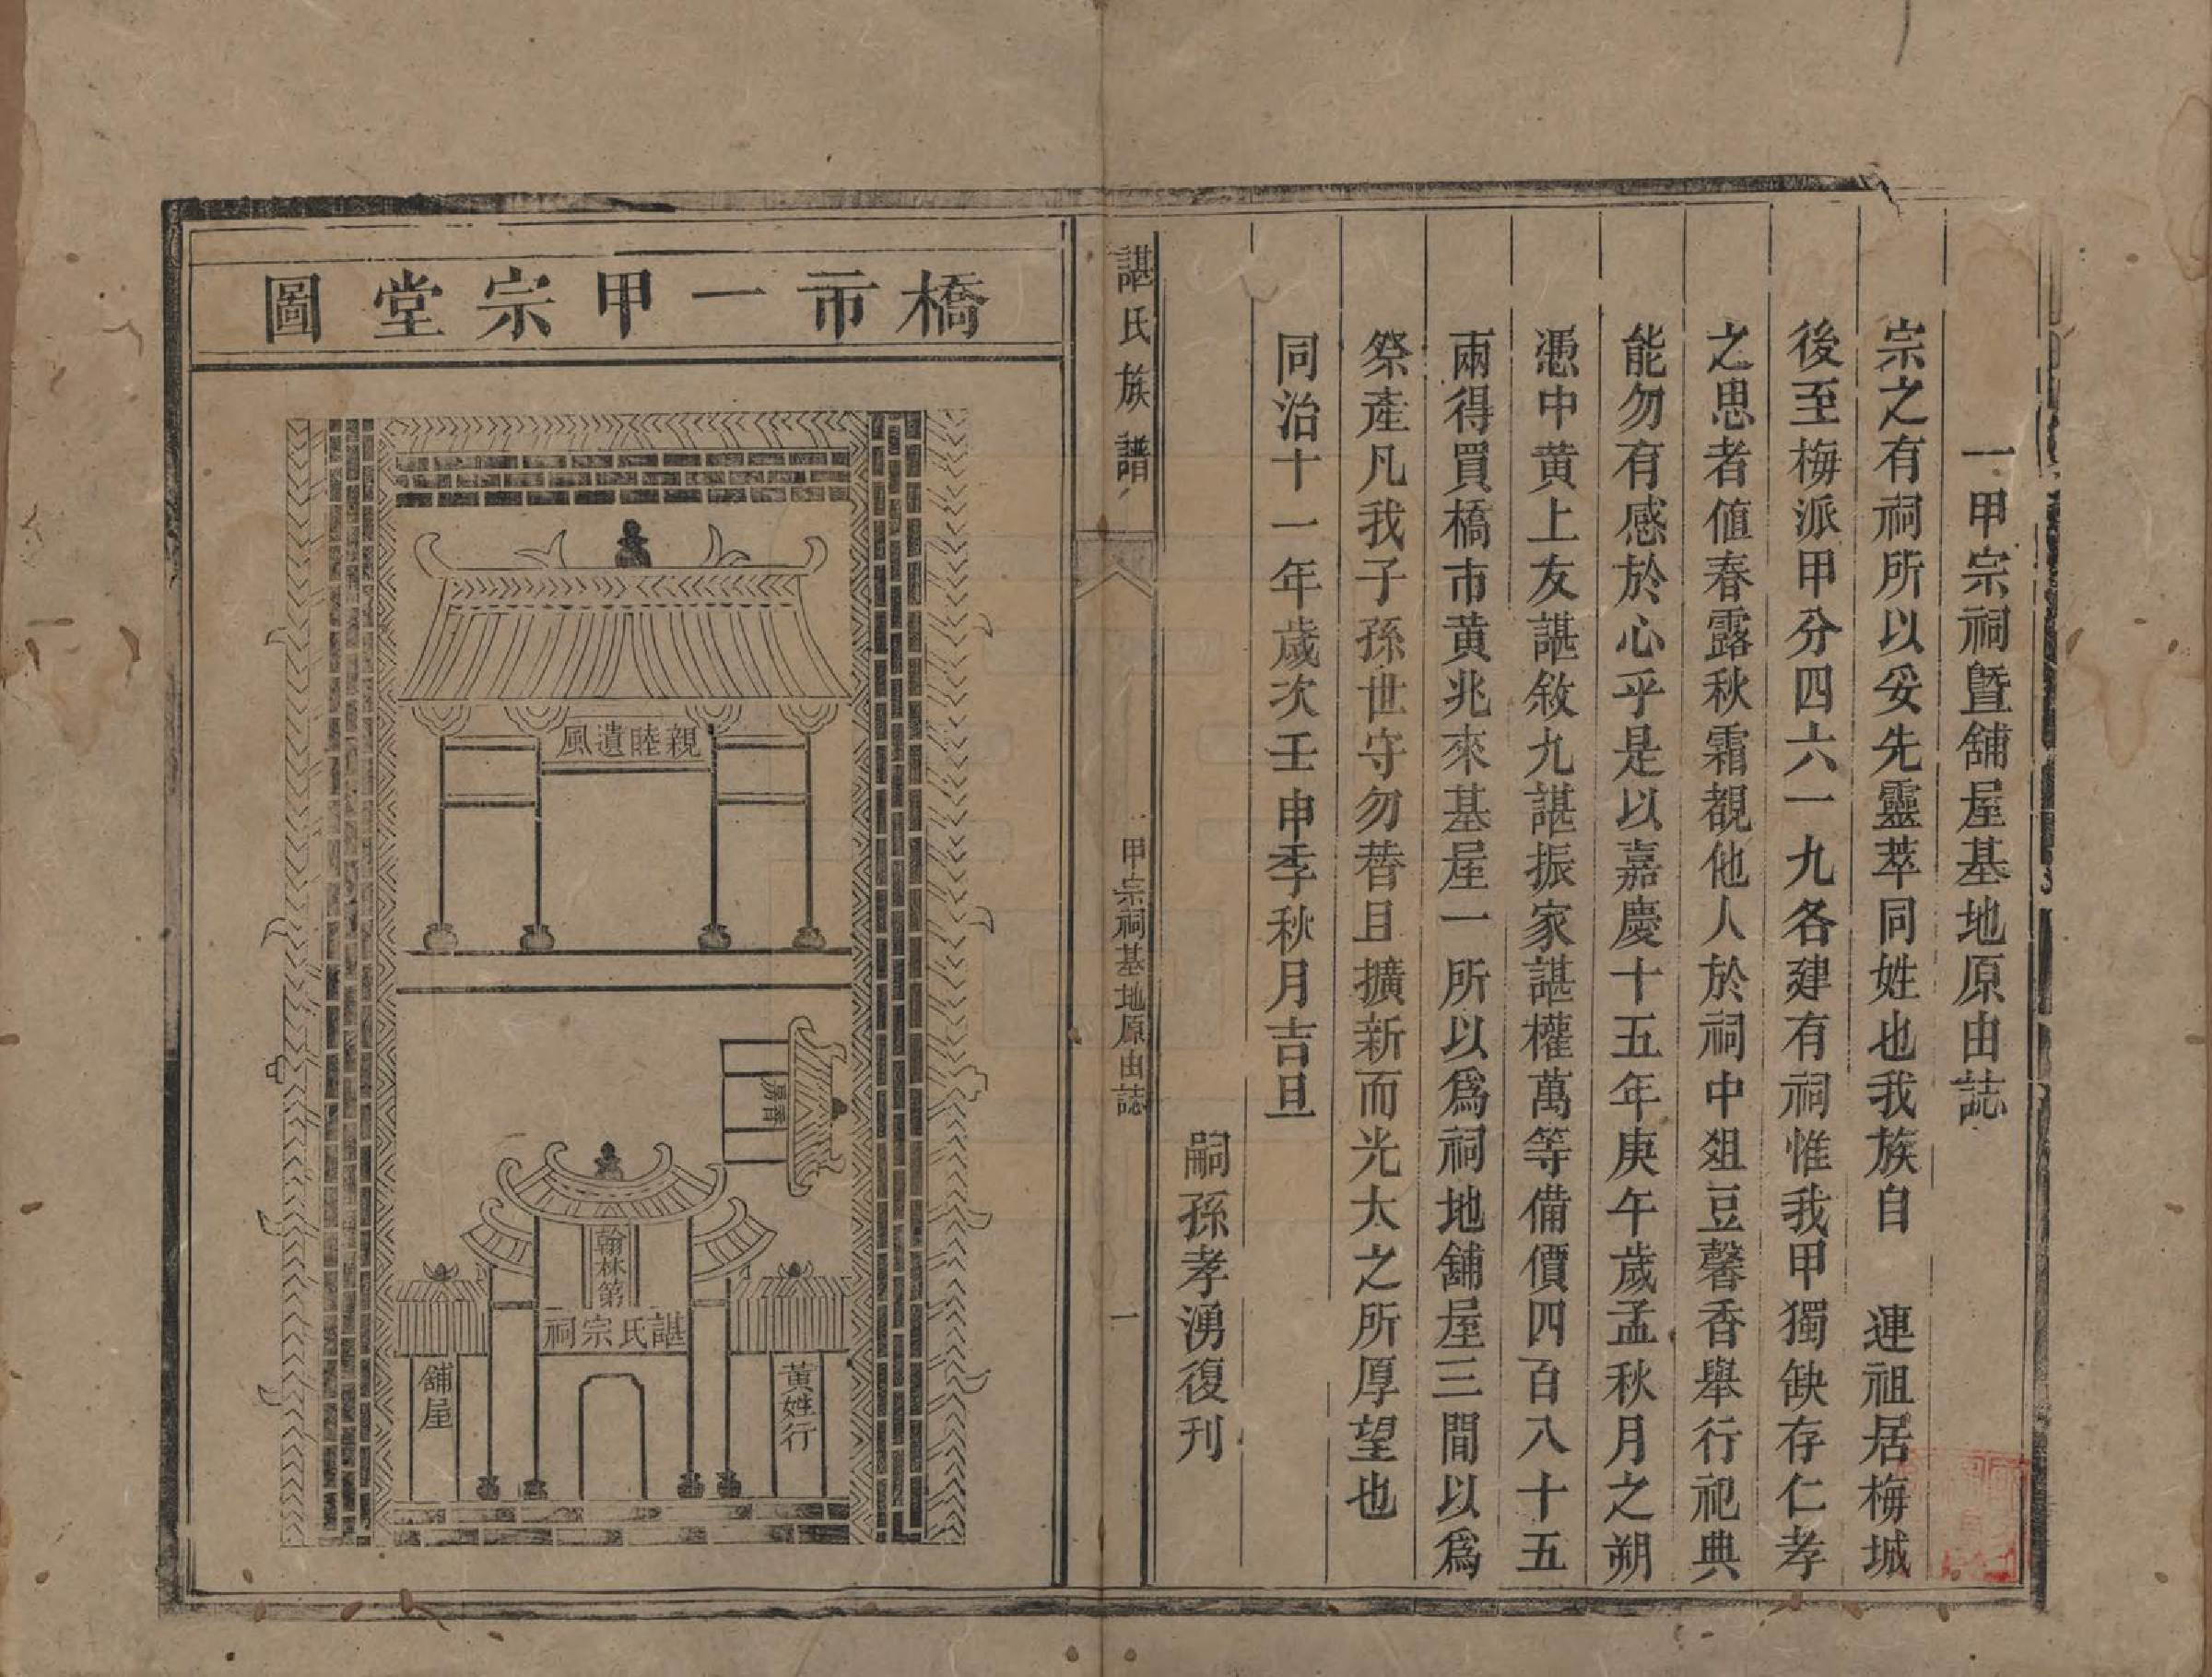 一甲宗祠曁舖屋基地原由誌
宗之有祠所以妥先靈萃同姓也我族自　連祖居梅城
後至梅派甲分四六一九各建有祠惟我甲獨缺存仁孝
之思者値春露秋霜覩他人於祠中爼豆馨香舉行祀典
能勿有感於心乎是以嘉慶十五年庚午歲孟秋月之朔
憑中黄上友諶敘九諶振家諶權萬等備價四百八十五
兩得買橋市黄兆來基屋一所以爲祠地舖屋三間以爲
祭產凡我子孫世守勿替且擴新而光大之所厚望也
同治十一年歲次壬申季秋月吉旦
嗣孫孝湧復刊
諶氏族譜
甲宗祠基地原由誌
一
橋市一甲宗堂圖
親睦遺風
香房
翰林第
諶氏宗祠
黄姓行
舖屋